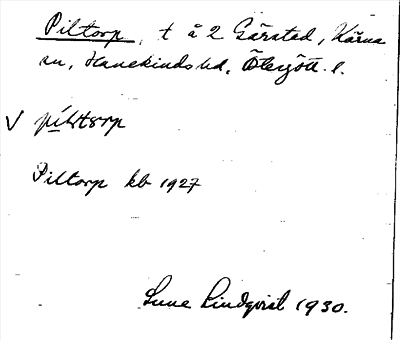 Piltorp, t å 2 Gärstad, Kärna
sn, Hanekinds hd, Östergötl. l.
V píltorp
Piltorp kb 1927
Sune Lindqvist 1930.